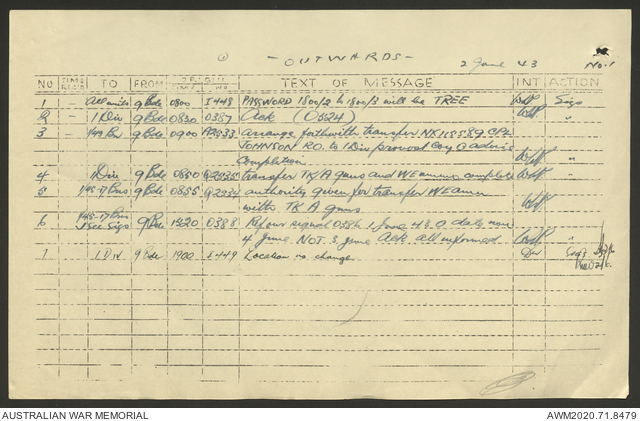 ① - OUTWARDS - 2 June 43 No. 1
NO TIME REC'D TO FROM ORIGIN TIME NO TEXT OF MESSAGE INT ACTION
1 - All units 9 Bde 0800 I448 PASSWORD 1800/2 to 1800/3 will be TREE Sigs
2 - 1 Div 9 Bde 0830 0387 Ack (0524) "
3 9 Bde 0900 A2533 Arrange forthwith transfer NX115589 CPL
JOHNSON R.O. to 1 Div provost Coy advise
completion "
4 1 Div 9 Bde 0850 transfer TK A guns and WE ammn complete "
5 9 Bde 0855 authority given for transfer WE ammn
with TK A guns "
6 9 Bde 1520 0388 Ref our signal 0386 1 June 43 date now
Sigs 4 June NOT 3 June Ack all informed "
7 1 Div 9 Bde 1900 I449 Location no change Sigs
AUSTRALIAN WAR MEMORIAL AWM2020.71.8479